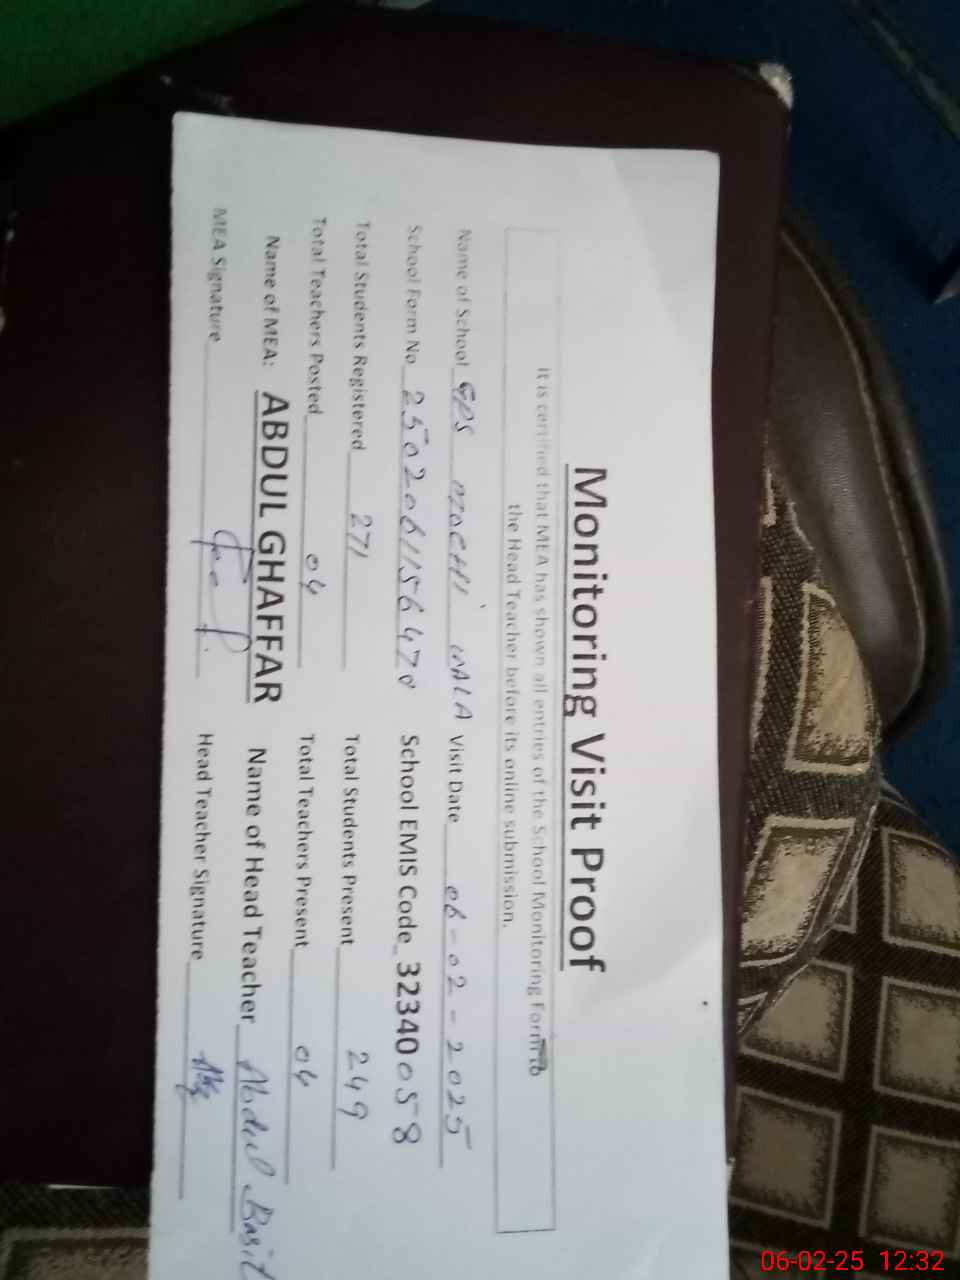 Monitoring Visit Proof
It is certified that MEA has shown all entries of the School Monitoring Form to
the Head Teacher before its online submission.
Name of School GPS MOCHI WALA Visit Date 06-02-2025
School Form No 25020611564 School EMIS Code 32340058
Total Students Registered 271 Total Students Present 249
Total Teachers Posted 04 Total Teachers Present 04
Name of MEA: ABDUL GHAFFAR Name of Head Teacher Abdul Basit
MEA Signature Head Teacher Signature
06-02-25 12:32